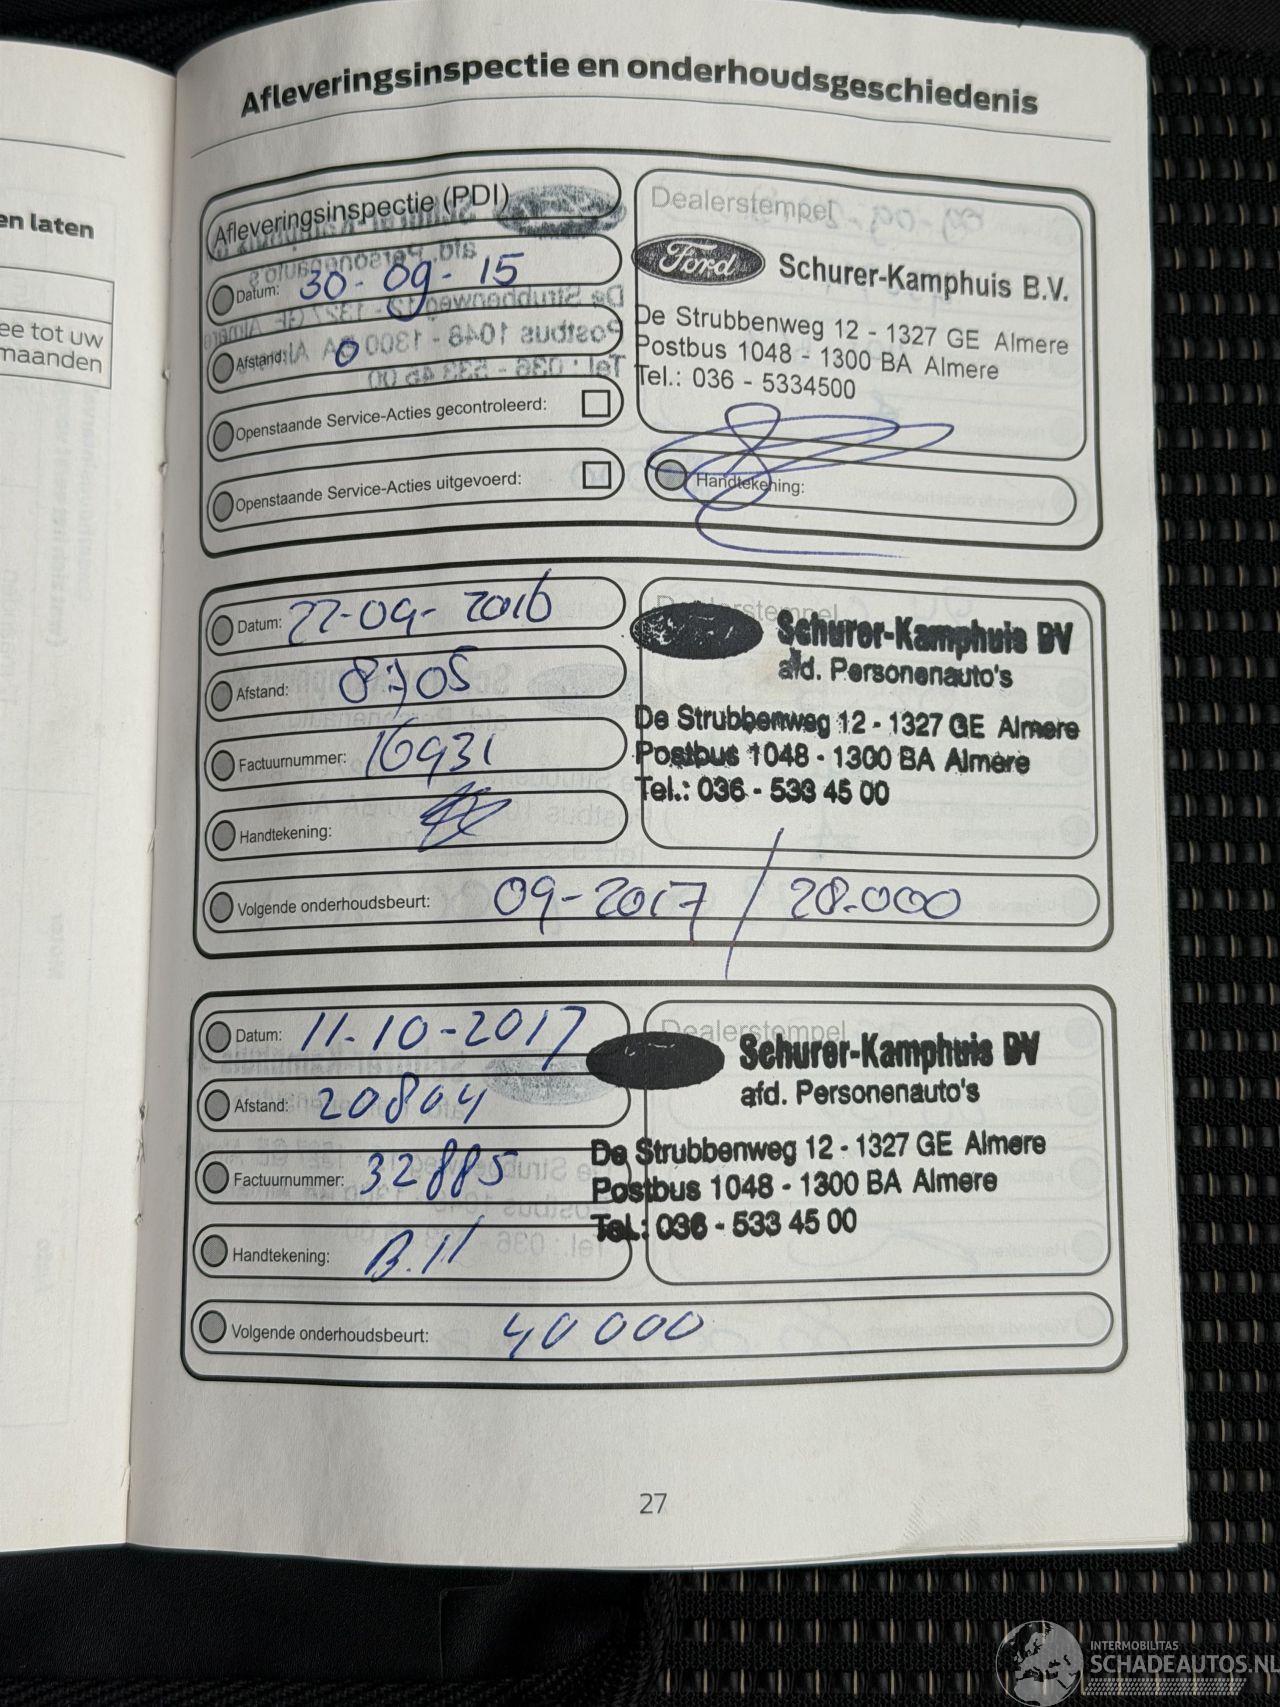 en laten
ee tot uw
maanden
Afleveringsinspectie en onderhoudsgeschiedenis
Afleveringsinspectie (PDI)
Datum: 30-09-15
Afstand: 0
Openstaande Service-Acties gecontroleerd:
Openstaande Service-Acties uitgevoerd:
Dealerstempel
Ford
Schurer-Kamphuis B.V.
De Strubbenweg 12 - 1327 GE Almere
Postbus 1048 - 1300 BA Almere
Tel.: 036 - 5334500
Handtekening:
Datum: 22-09-2016
Afstand: 8705
Factuurnummer: 16931
Handtekening:
Dealerstempel
Schurer-Kamphuis BV
afd. Personenauto's
De Strubbenweg 12 - 1327 GE Almere
Postbus 1048 - 1300 BA Almere
Tel.: 036 - 533 45 00
Volgende onderhoudsbeurt: 09-2017 / 28.000
Datum: 11-10-2017
Afstand: 20804
Factuurnummer: 32885
Handtekening:
Dealerstempel
Schurer-Kamphuis BV
afd. Personenauto's
De Strubbenweg 12 - 1327 GE Almere
Postbus 1048 - 1300 BA Almere
Tel.: 036 - 533 45 00
Volgende onderhoudsbeurt: 40000
27
INTERMOBILITAS
SCHADEAUTOS.NL